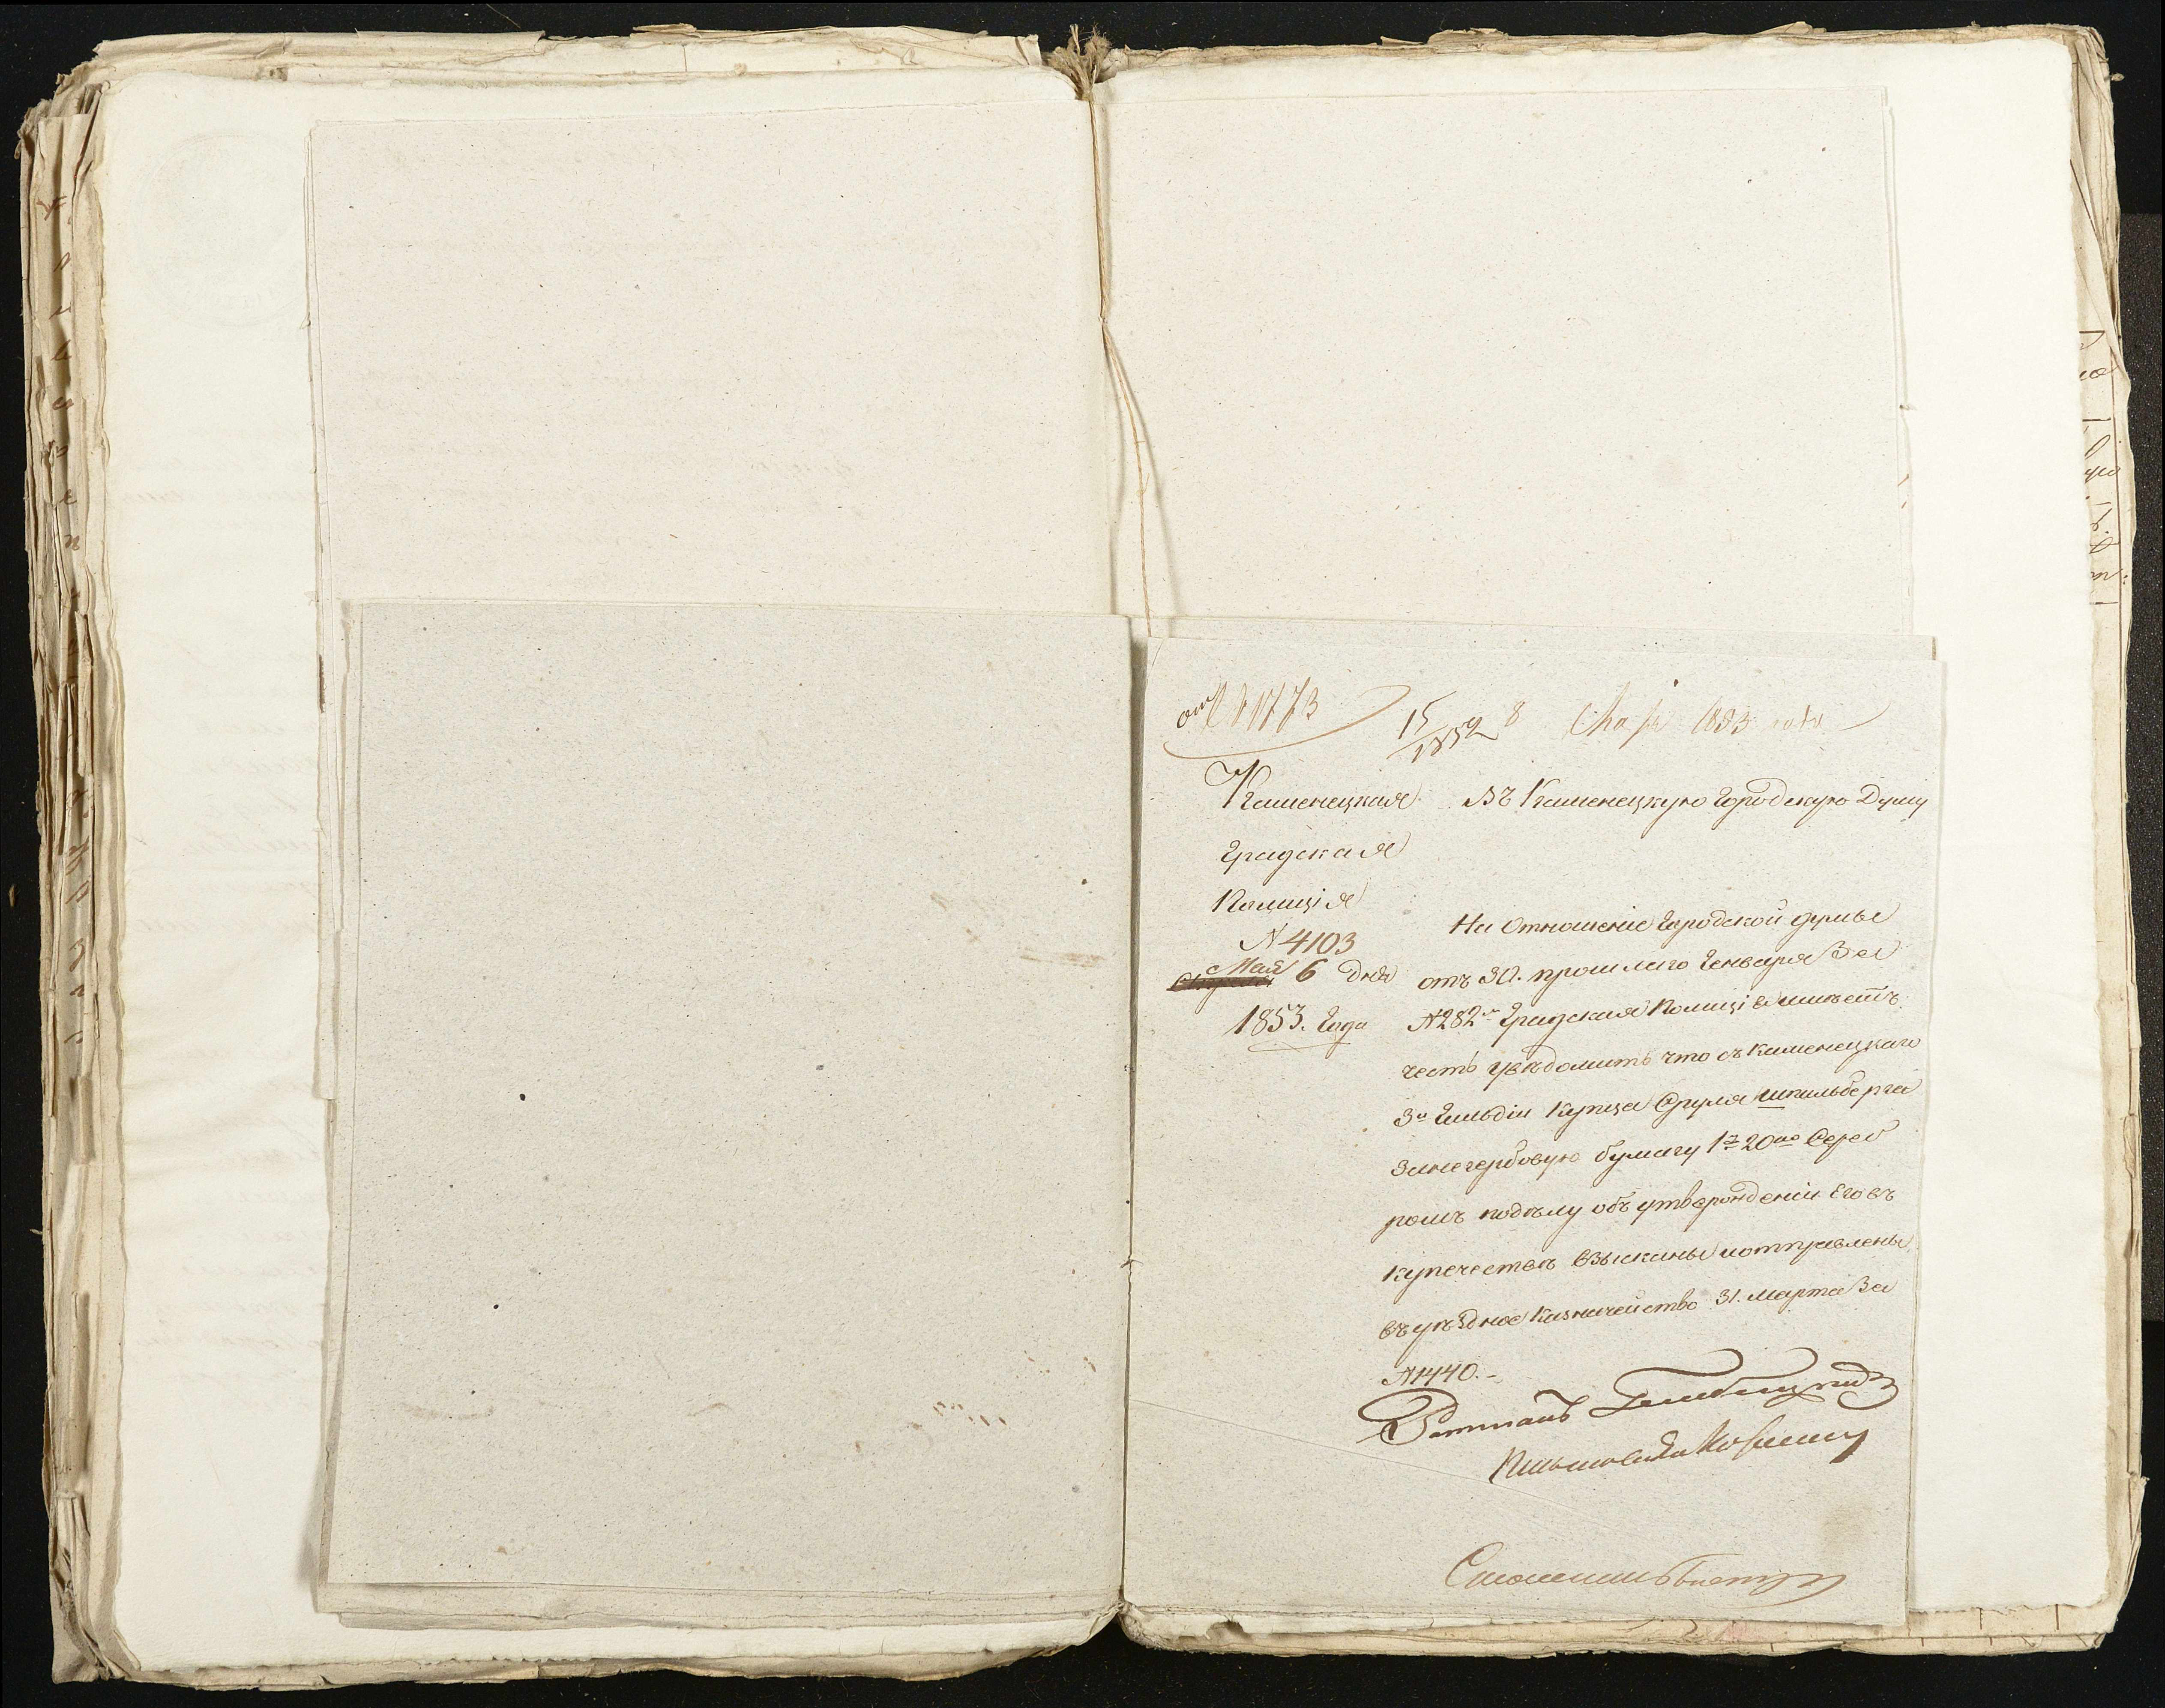 1773
15/1852 8 Мая 1853 года
Каменецкая
Градская
Полиція
N 4103
Мая 6 дня
1853. Года
Въ Каменецкую Городскую Думу
На Отношеніе Городской думы
отъ 30. прошлаго Генваря За
N282м Градская Полиція имѣетъ
честь увѣдомить что съ Каменецкаго
3й Гильдіи Купца Сруля Шпильберга
занегербовую бумагу 1 р 20 ко Сереб
ромъ подѣлу объ утвержденіи Его въ
купечествѣ взысканы иотправлены
въуѣздное Казначейство 31. Марта За
N1440.-